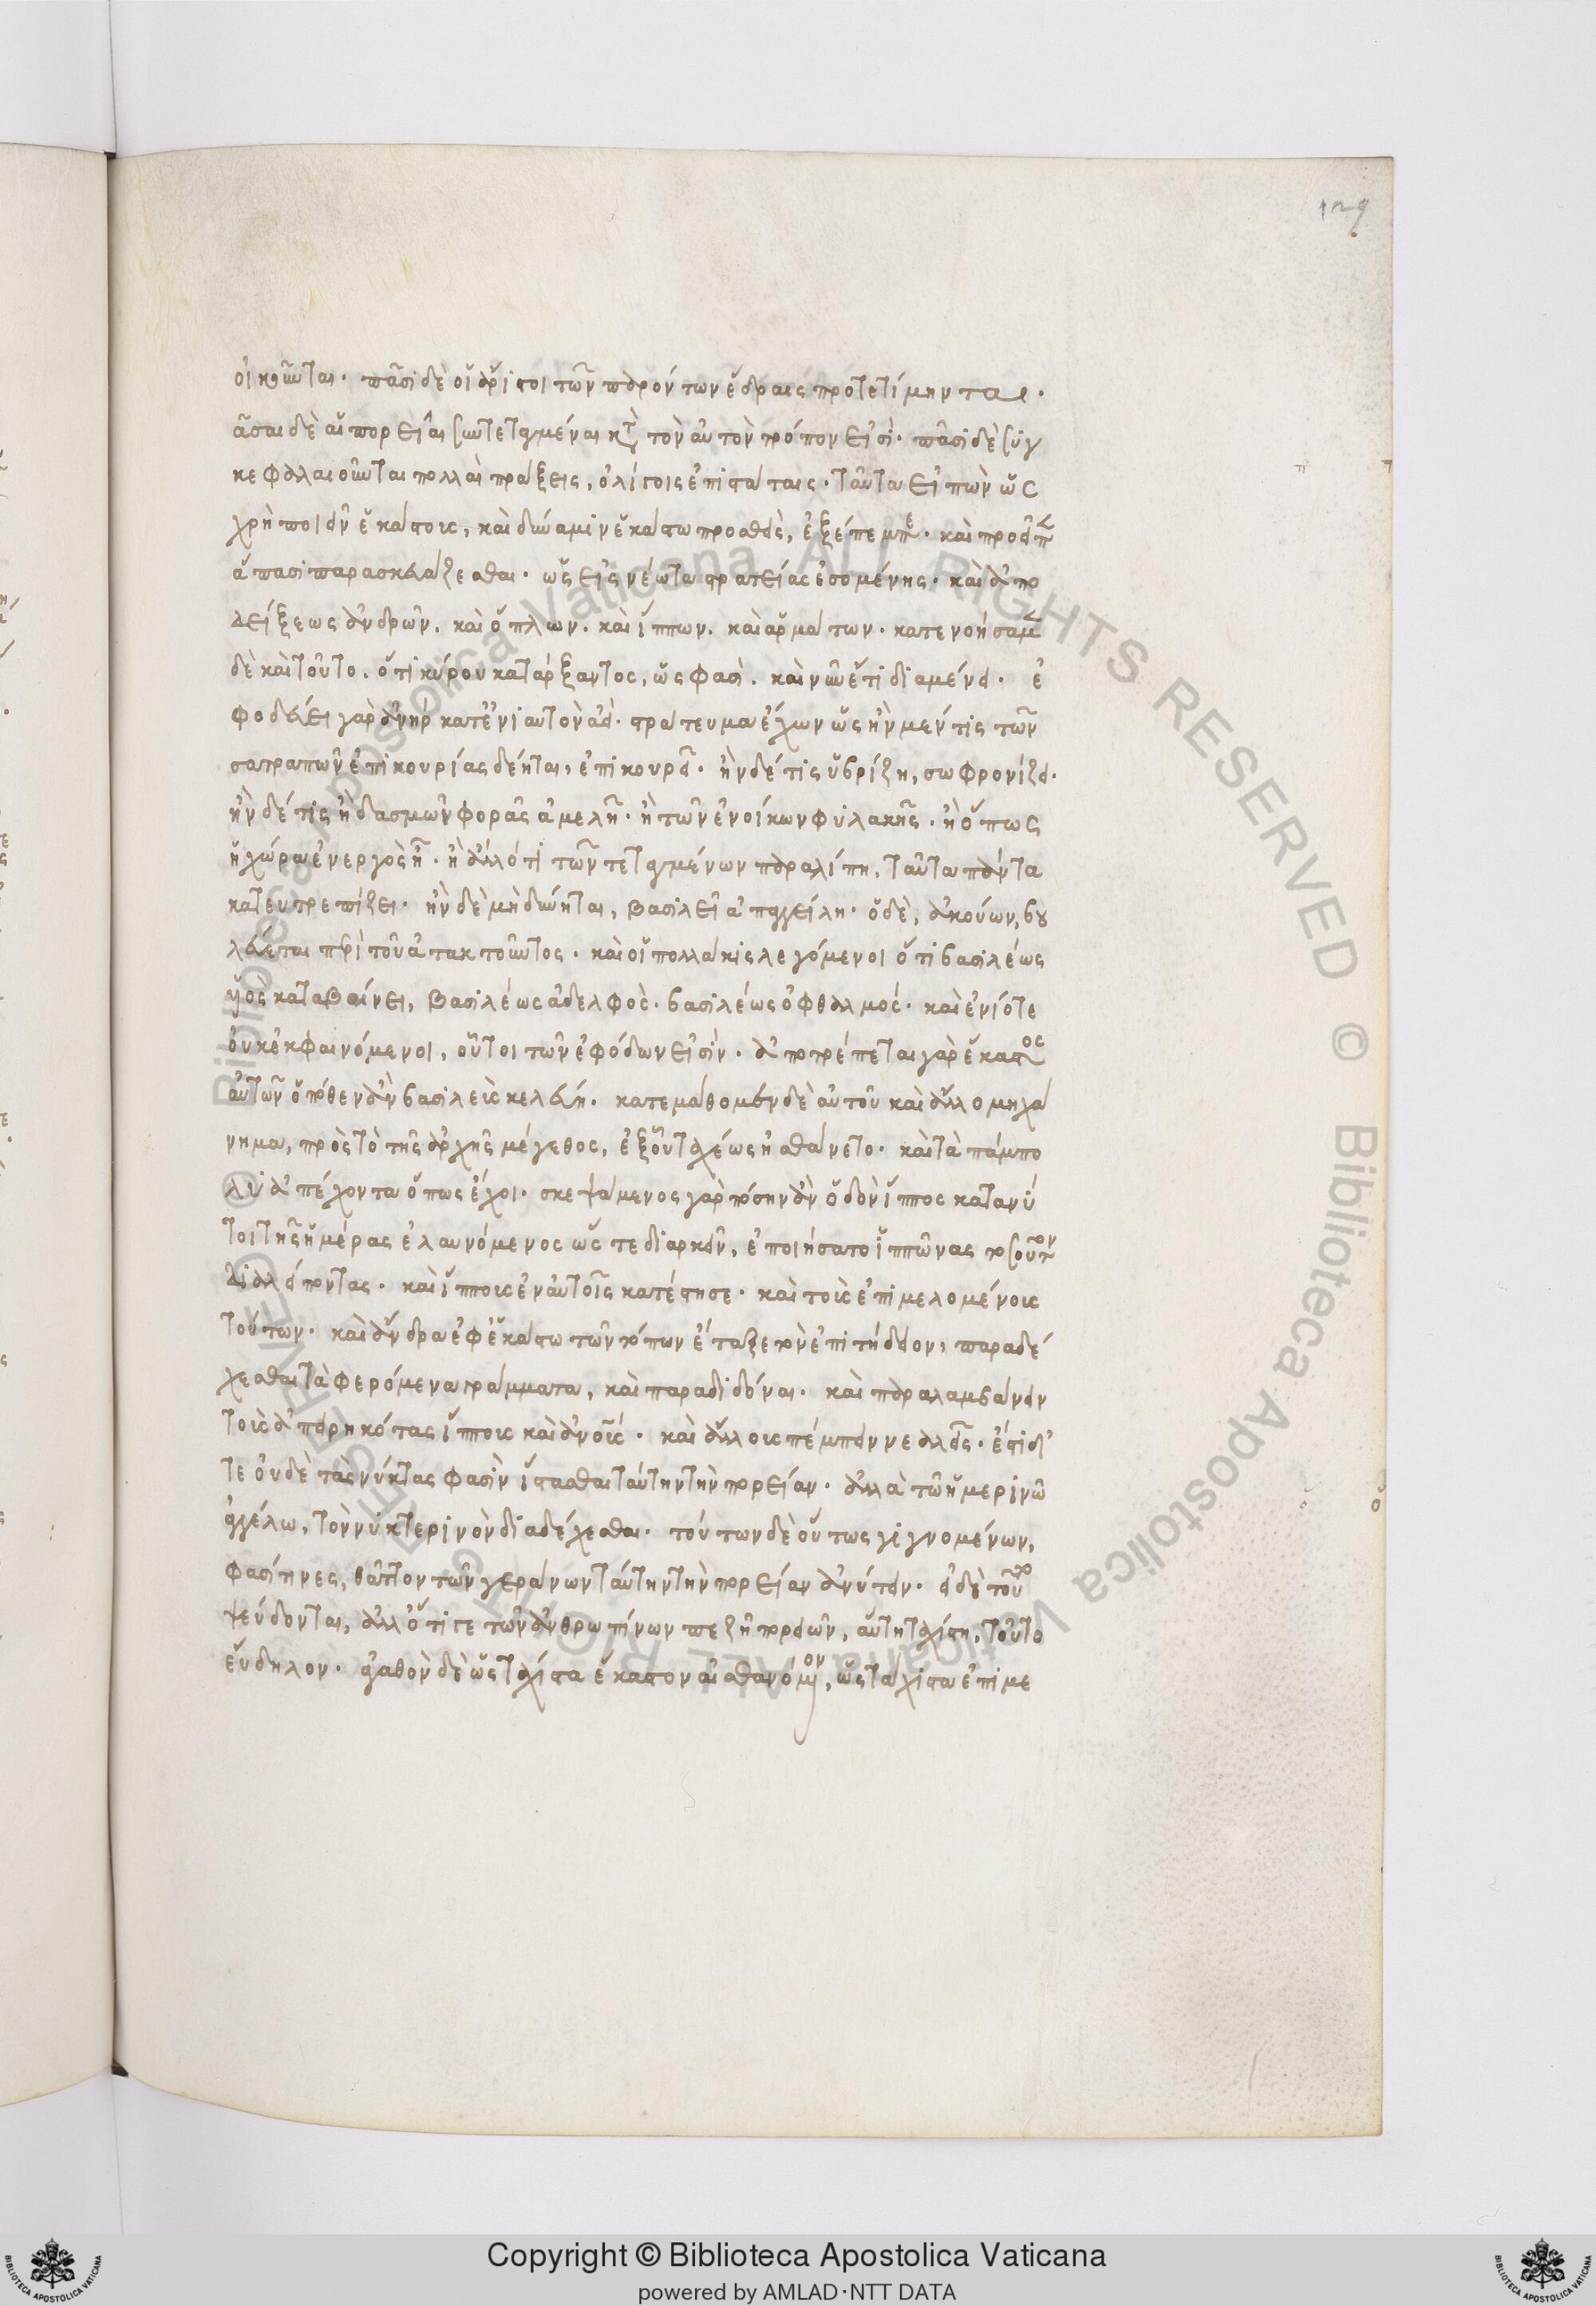 129
οἰκοῦνται· πᾶσι δὲ οἱ ἄριστοι τῶν παρόντων ἕδραις προτετίμηνται·
ἅσαι δὲ αἱ πορεῖαι συντεταγμέναι κατὰ τὸν αὐτὸν τρόπον εἰσί· πᾶσι δὲ συγ
κεφαλαιοῦνται πολλαὶ πράξεις, ὀλίγοις ἐπιστάταις· ταῦτα εἰπὼν ὡς
χρὴ ποιεῖν ἑκάστοις, καὶ δύναμιν ἑκάστω προσθεὶς, ἐξέπεμπε· καὶ προεῖπεν
ἅπασι παρασκευάζεσθαι· ὡς εἰς νέωτα στρατείας ἐσομένης· καὶ ἀπο
δείξεως ἀνδρῶν. καὶ ὅπλων. καὶ ἵππων. καὶ ἁρμάτων· κατενοήσαμεν
δὲ καὶ τοῦτο. ὅτι κύρου κατάρξαντος, ὥς φασι. καὶ νῦν ἔτι διαμένει· ἐ
φοδεύει γὰρ ἀνὴρ κατ' ἐνιαυτὸν ἀεί· στράτευμα ἔχων ὡς ἢν μέν τις τῶν
σατραπῶν ἐπικουρίας δέηται, ἐπικουρεῖ· ἢν δέ τις ὑβρίζη, σωφρονίζει·
ἢν δέ τις ἢ δασμῶν φορᾶς ἀμελῆ· ἢ τῶν ἐνοίκων φυλακῆς· ἢ ὅπως
ἡ χώρα ἐνεργὸς ἦ· ἢ ἄλλό τι τῶν τεταγμένων παραλίπη, ταῦτα πάντα
κατευτρεπίζει· ἢν δὲ μὴ δύνηται, βασιλεῖ ἀπαγγείλη· ὁ δὲ, ἀκούων, βου
λεύεται περὶ τοῦ ἀτακτοῦντος· καὶ οἱ πολλάκις λεγόμενοι ὅτι βασιλέως
υἱὸς καταβαίνει, βασιλέως ἀδελφὸς· βασιλέως ὀφθαλμός· καὶ ἐνίοτε
οὐκ ἐκφαινόμενοι, οὗτοι τῶν ἐφόδων εἰσίν· ἀποτρέπεται γὰρ ἕκαστος
αὐτῶν ὅποθεν ἂν βασιλεὺς κελεύη· κατεμάθομεν δὲ αὐτοῦ καὶ ἄλλο μηχά
νημα, πρὸς τὸ τῆς ἀρχῆς μέγεθος, ἐξ οὗ ταχέως ἠσθάνετο· καὶ τὰ πάμπο
λυ ἀπέχοντα ὅπως ἔχοι· σκεψάμενος γὰρ πόσην ἂν ὁδὸν ἵππος κατανύ
τοι τῆς ἡμέρας ἐλαυνόμενος ὥστε διαρκεῖν, ἐποιήσατο ἱππῶνας τοσοῦτον
διαλείποντας· καὶ ἵππους ἐν αὐτοῖς κατέστησε· καὶ τοὺς ἐπιμελομένους
τούτων· καὶ ἄνδρα ἐφ' ἑκάστω τῶν τόπων ἔταξε τὸν ἐπιτήδειον, παραδέ
χεσθαι τὰ φερόμενα γράμματα, καὶ παραδιδόναι· καὶ παραλαμβάνειν
τοὺς ἀπειρηκότας ἵππους καὶ ἀνους· καὶ ἄλλους πέμπειν νεαλεῖς· ἔστι δ'
τε οὐδὲ τὰς νύκτας φασὶν ἵστασθαι ταύτην τὴν πορείαν· ἀλλὰ τῶ ἡμερινῶ
ἀγγέλω, τὸν νυκτερινὸν διαδέχεσθαι· τούτων δὲ οὕτως γιγνομένων,
φασί τινες, θᾶττον τῶν γεράνων ταύτην τὴν πορείαν ἀνύτειν· εἰ δὲ τοῦτο
ψεύδονται, ἀλλ' ὅτι γε τῶν ἀνθρωπίνων πεζῆ πορειῶν, αὕτη ταχίστη, τοῦτο
εὔδηλον· ἀγαθὸν δὲ ὡς τάχιστα ἕκαστον αἰσθανόμενον, ὡς τάχιστα ἐπιμε
Copyright © Biblioteca Apostolica Vaticana
powered by AMLAD·NTT DATA